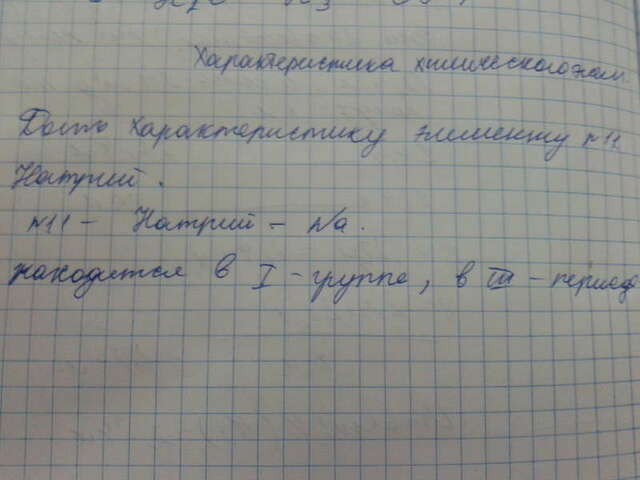 Характеристика химического элем
Дать характеристику элементу №11
Натрий.
№11 - Натрий - Na.
находится в I - группе, в III - периоде